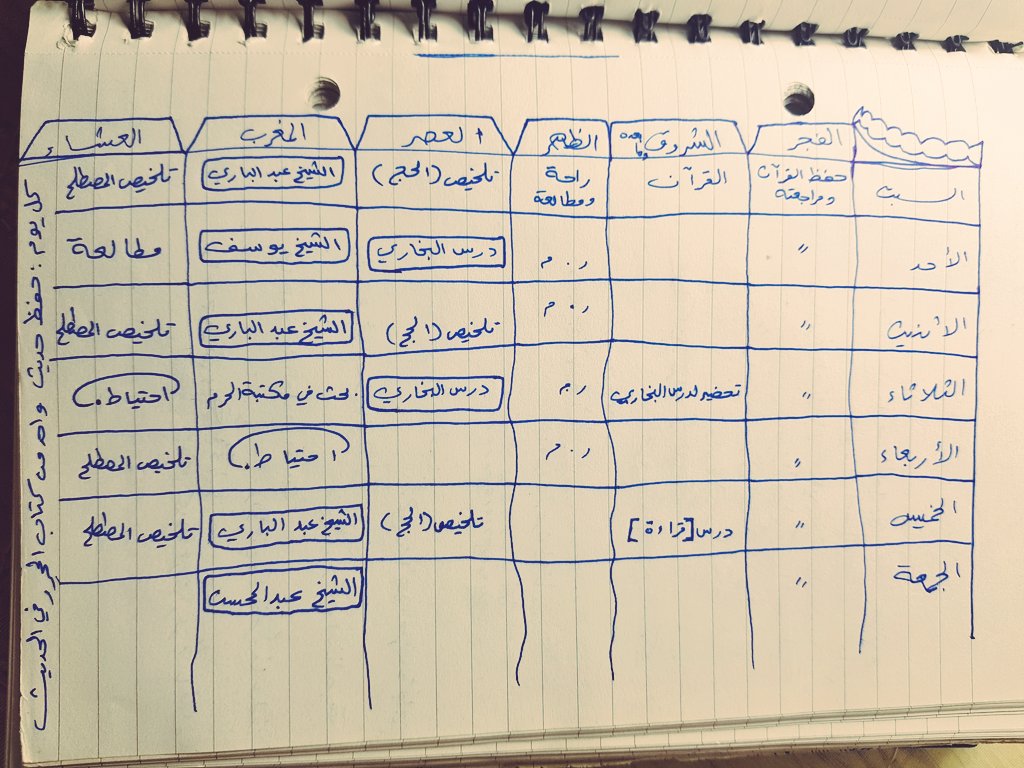 الفجر الشروق وما بعده الظهر العصر المغرب العشاء
السبت حفظ القرآن ومراجعته القرآن راحة ومطالعة تلخيص (الحجج) الشيخ عبد الباري تلخيص المصطلح
الأحد " ر.م درس البخاري الشيخ يوسف مطالعة
الاثنين " ر.م تلخيص (الحجج) الشيخ عبد الباري تلخيص المصطلح
الثلاثاء " تحضير لدرس البخاري ر.م درس البخاري بحث في مكتبة الحرم احتياط.
الأربعاء " ر.م احتياط. تلخيص المصطلح
الخميس " درس [قراءة] تلخيص (الحجج) الشيخ عبد الباري تلخيص المصطلح
الجمعة " الشيخ عبد المحسن
كل يوم: حفظ حديث واحد من كتاب المحرر في الحديث